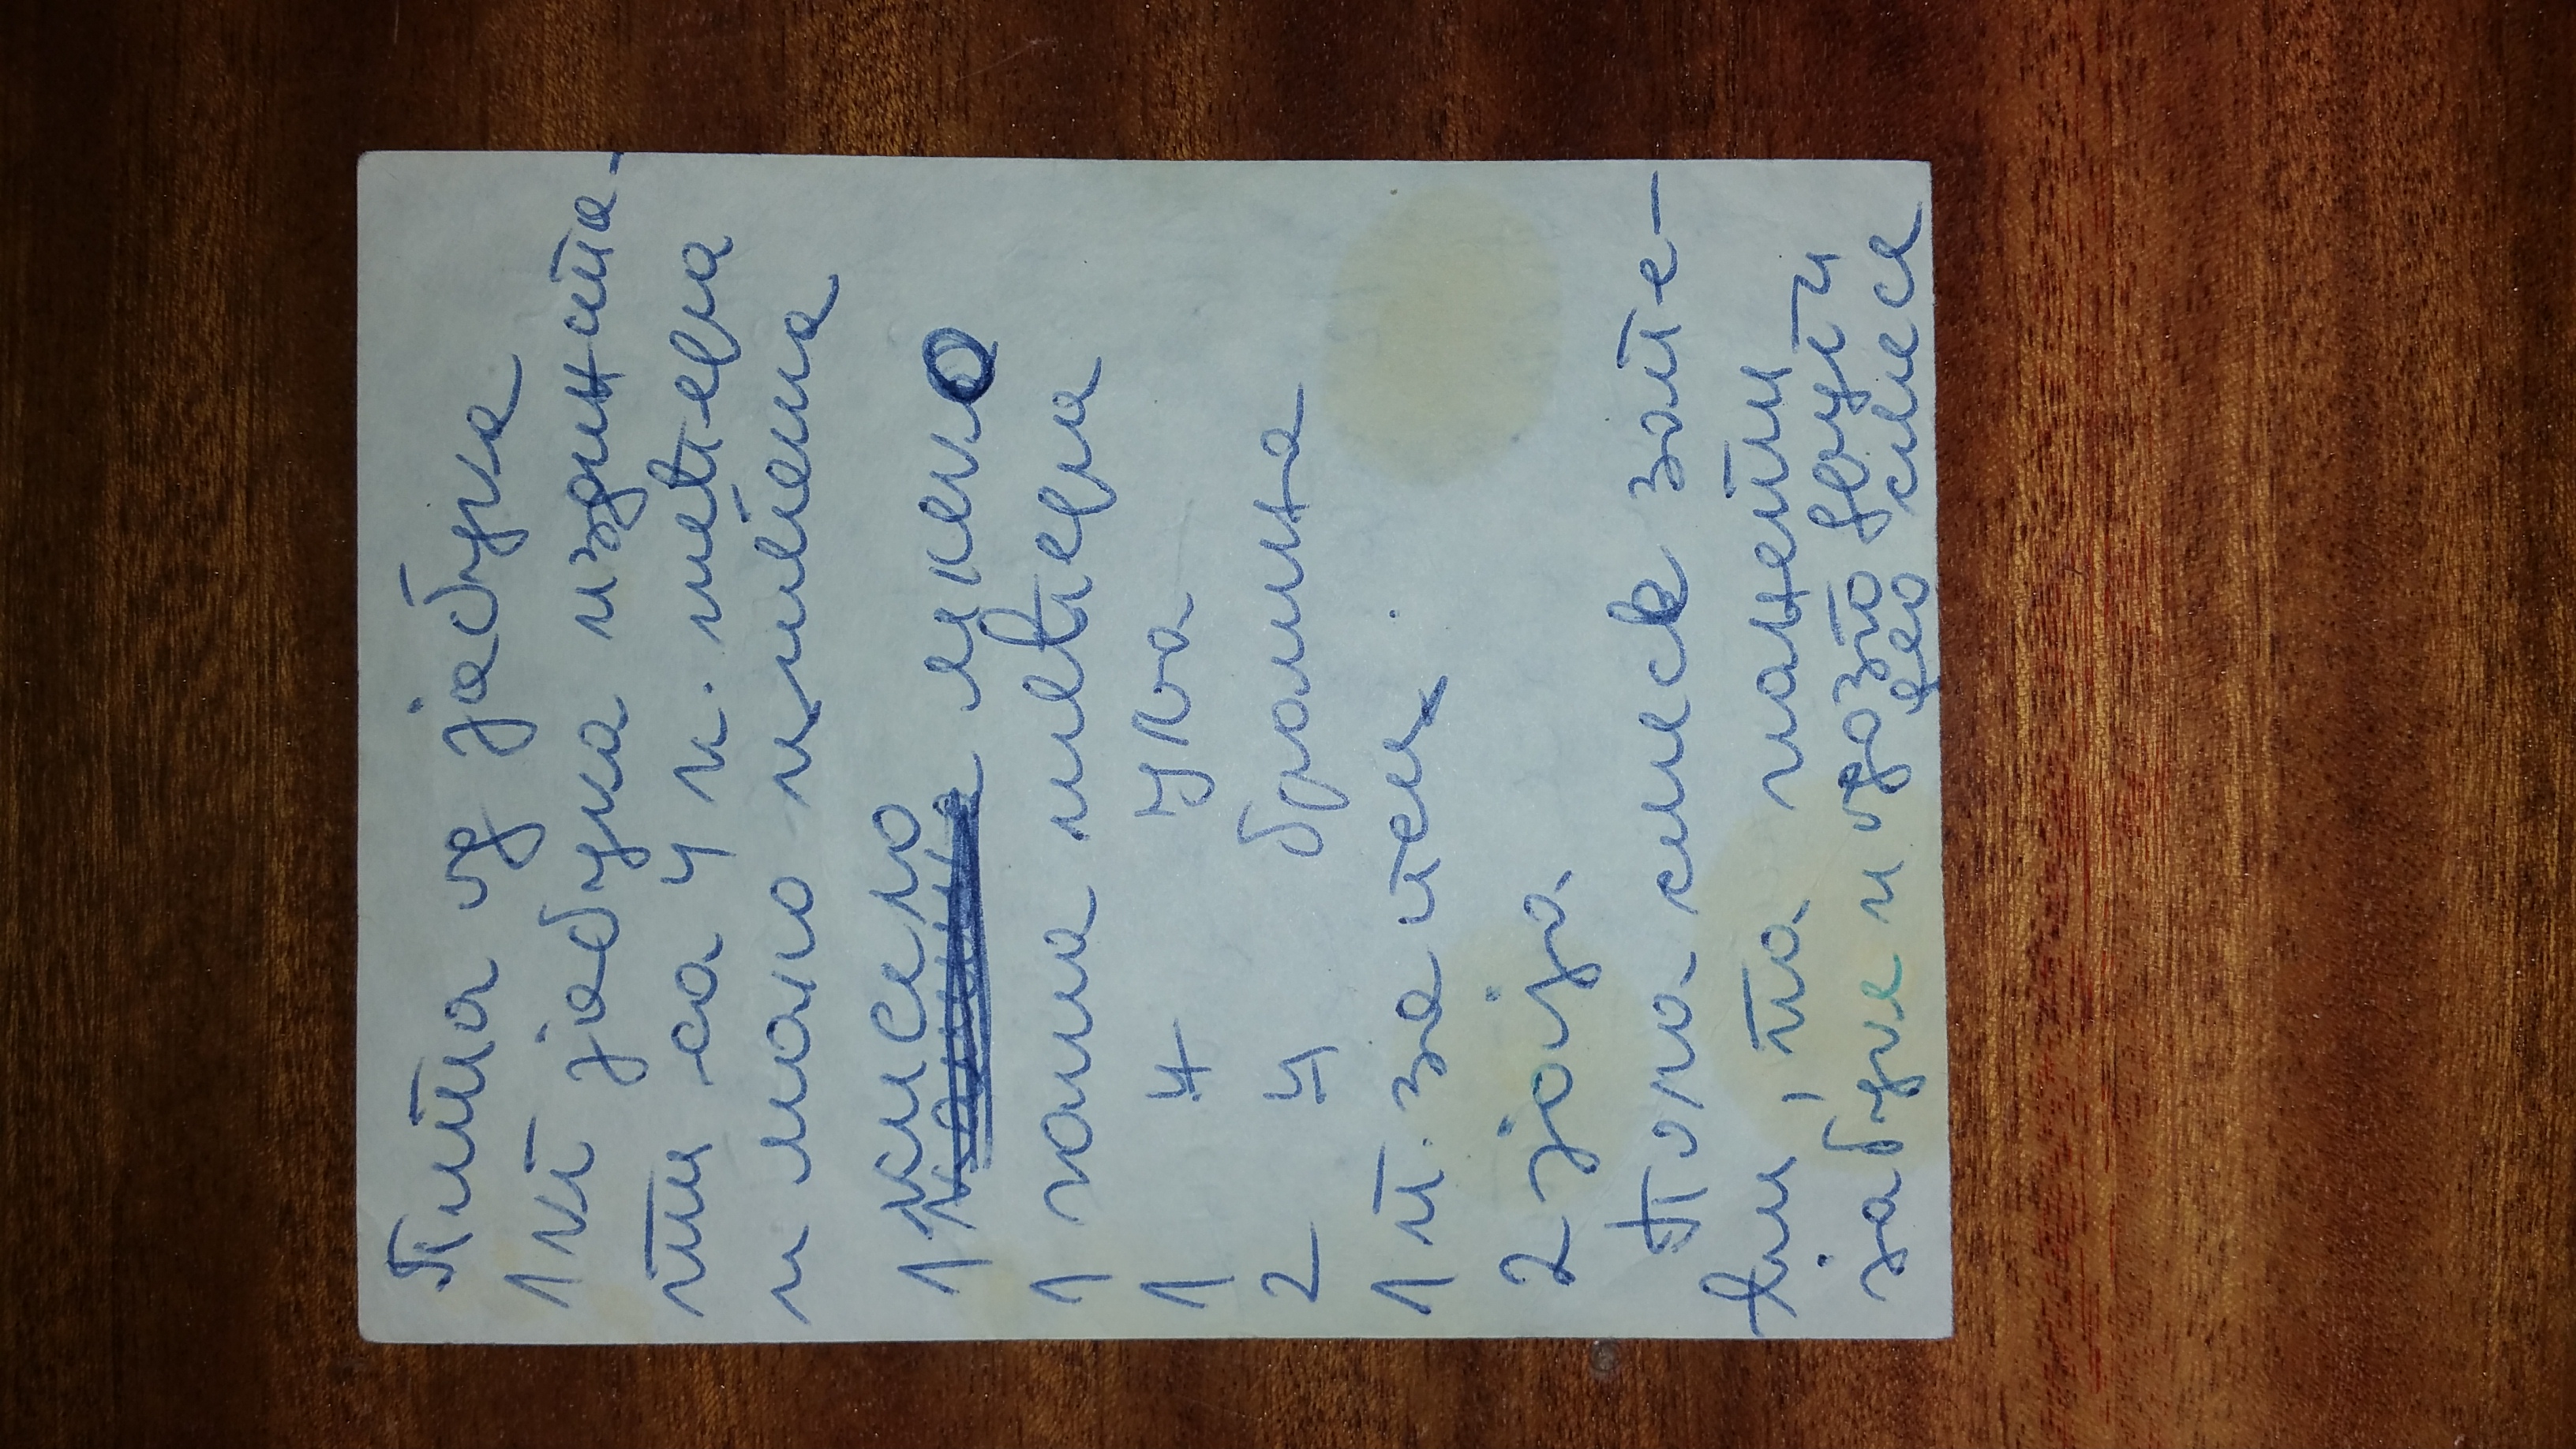 Пита од јабука
1 кг јабука издинста-
ти са 4 к. шећера
и мало цимета
кисело
1 млеко
1 чаша шећера
1 " уља
2 " брашна
1 п. за пец.
2 јаја
Пола смесе запе-
ћи, па нанети
јабуке и одозго други
део смесе